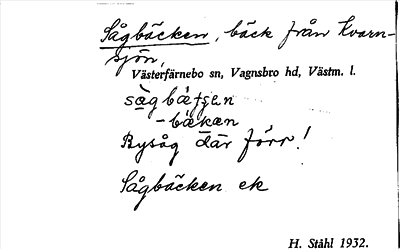 Sågbäcken, bäck från Kvarn-
sjön,
Västerfärnebo sn, Vagnsbro hd, Västm. l.
-bäkæn
Bysåg där förr!
Sågbäcken ek
H. Ståhl 1932.